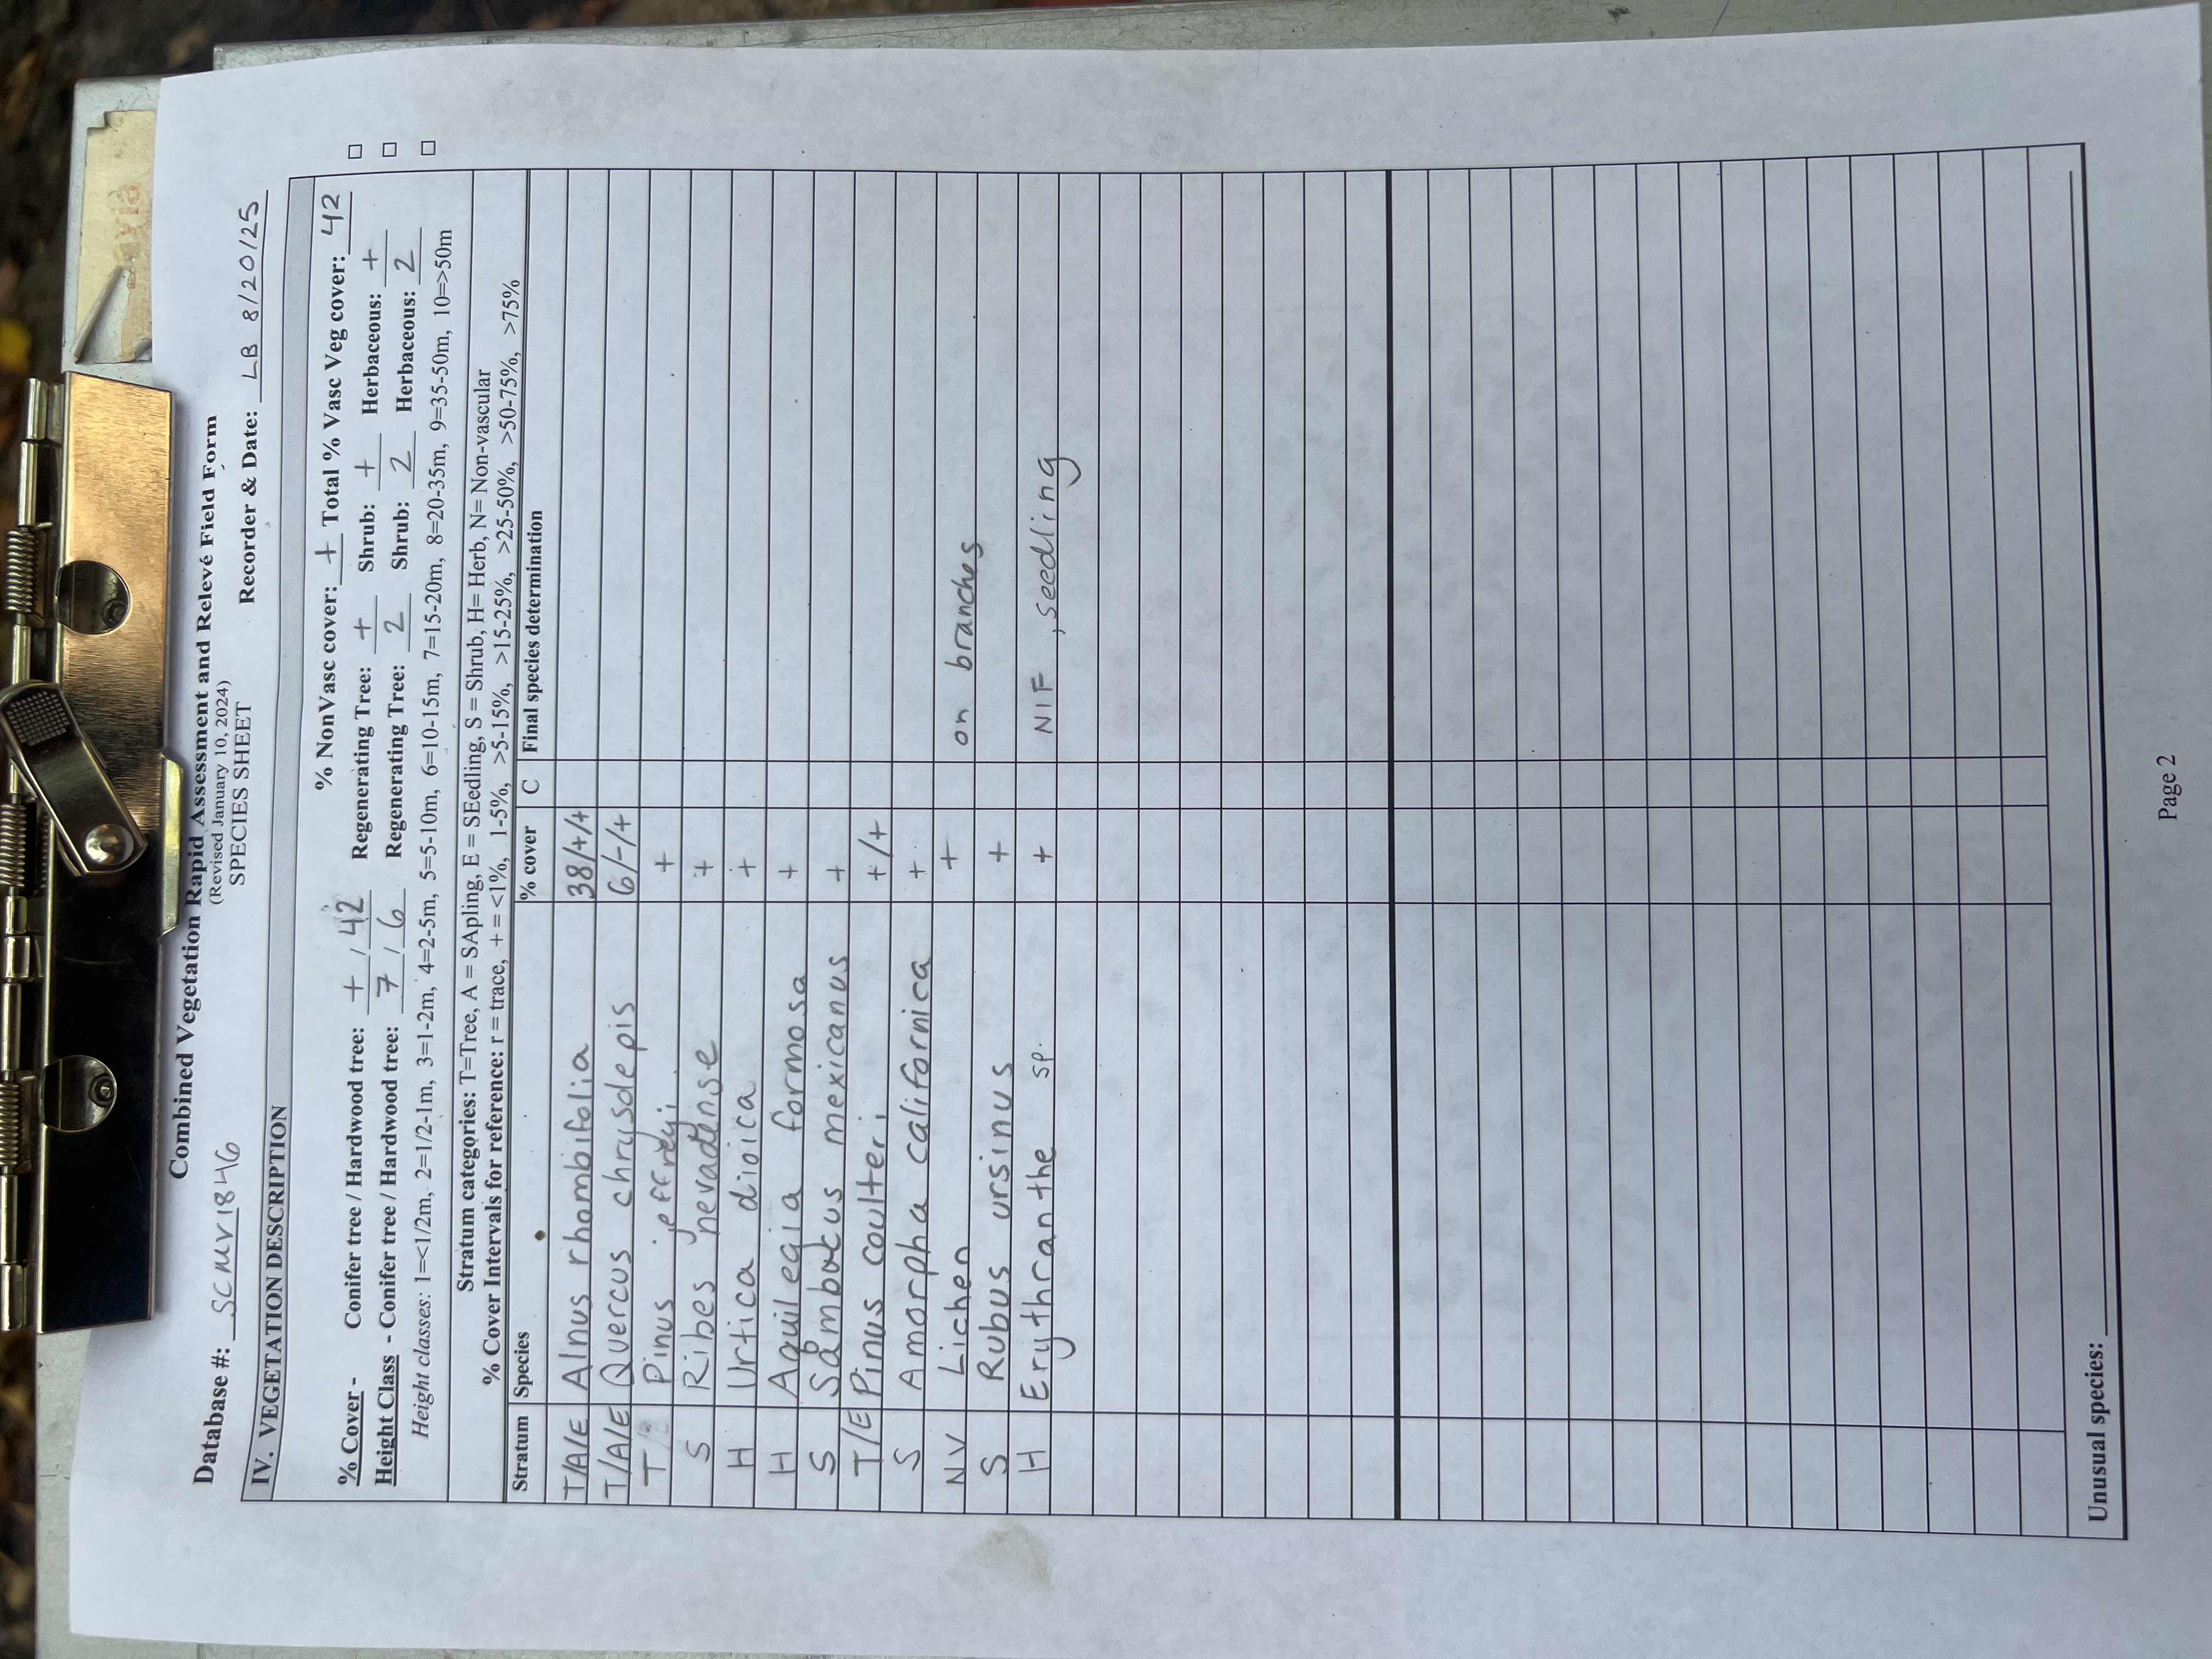 Combined Vegetation Rapid Assessment and Relevé Field Form
(Revised January 10, 2024)
SPECIES SHEET
Database #: SCMV1846 Recorder & Date: LB 8/20/25
IV. VEGETATION DESCRIPTION
% NonVasc cover: + Total % Vasc Veg cover: 42
% Cover - Conifer tree / Hardwood tree: + / 42 Regenerating Tree: + Shrub: + Herbaceous: +
Height Class - Conifer tree / Hardwood tree: 7 / 6 Regenerating Tree: 2 Shrub: 2 Herbaceous: 2
Height classes: 1=<1/2m, 2=1/2-1m, 3=1-2m, 4=2-5m, 5=5-10m, 6=10-15m, 7=15-20m, 8=20-35m, 9=35-50m, 10=>50m
Stratum categories: T=Tree, A = SApling, E = SEedling, S = Shrub, H= Herb, N= Non-vascular
% Cover Intervals for reference: r = trace, + = <1%, 1-5%, >5-15%, >15-25%, >25-50%, >50-75%, >75%
Stratum Species % cover C Final species determination
T/A/E Alnus rhombifolia 38/+/+
T/A/E Quercus chrysolepis 6/-/+
T Pinus jeffreyi +
S Ribes nevadense +
H Urtica dioica +
H Aquilegia formosa +
S Sambucus mexicanus +
T/E Pinus coulteri +/+
S Amorpha californica +
NV Lichen + on branches
S Rubus ursinus +
H Erythranthe sp. + NIF, seedling
Unusual species:
Page 2